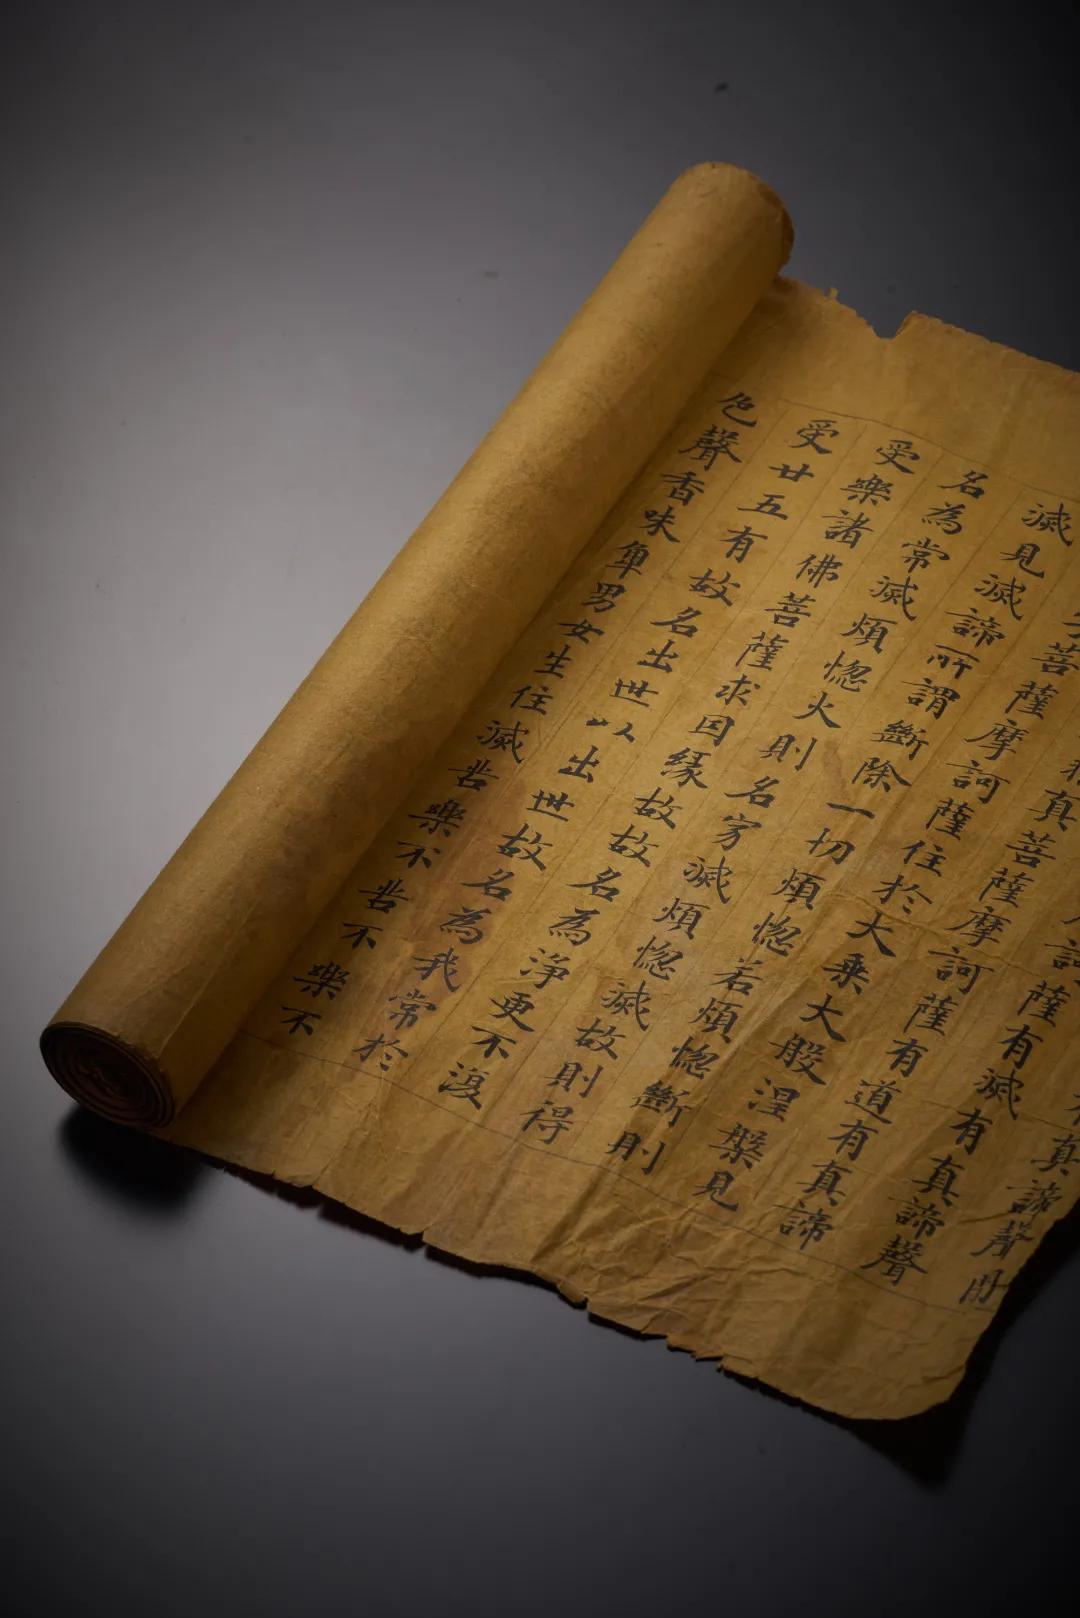 真諦聲聞
訶薩有滅有真諦聲
真菩薩摩訶薩有道有真諦
菩薩摩訶薩住於大乘大般涅槃見
滅見滅諦所謂斷除一切煩惱若煩惱斷則
名為常滅煩惱火則名寂滅煩惱滅故則得
受樂諸佛菩薩求因緣故故名為淨更不復
受廿五有故名出世以出世故名為我常於
色聲香味男女生住滅苦樂不苦不樂不